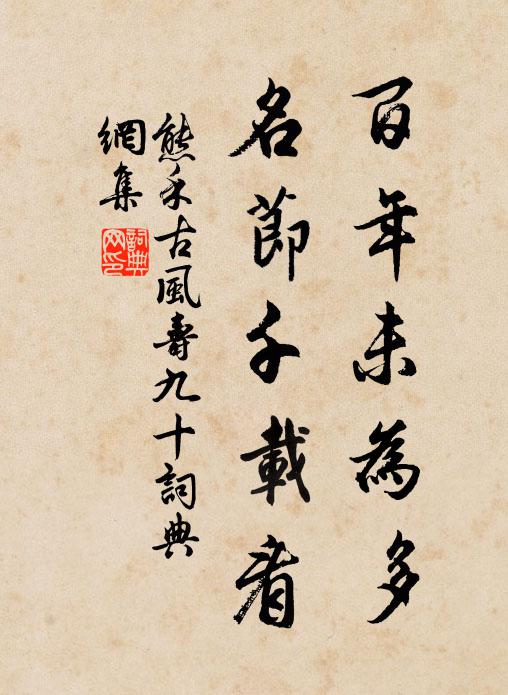 百年未為多
名節千載看
熊禾古風壽九十詞典
網集
詞典網印